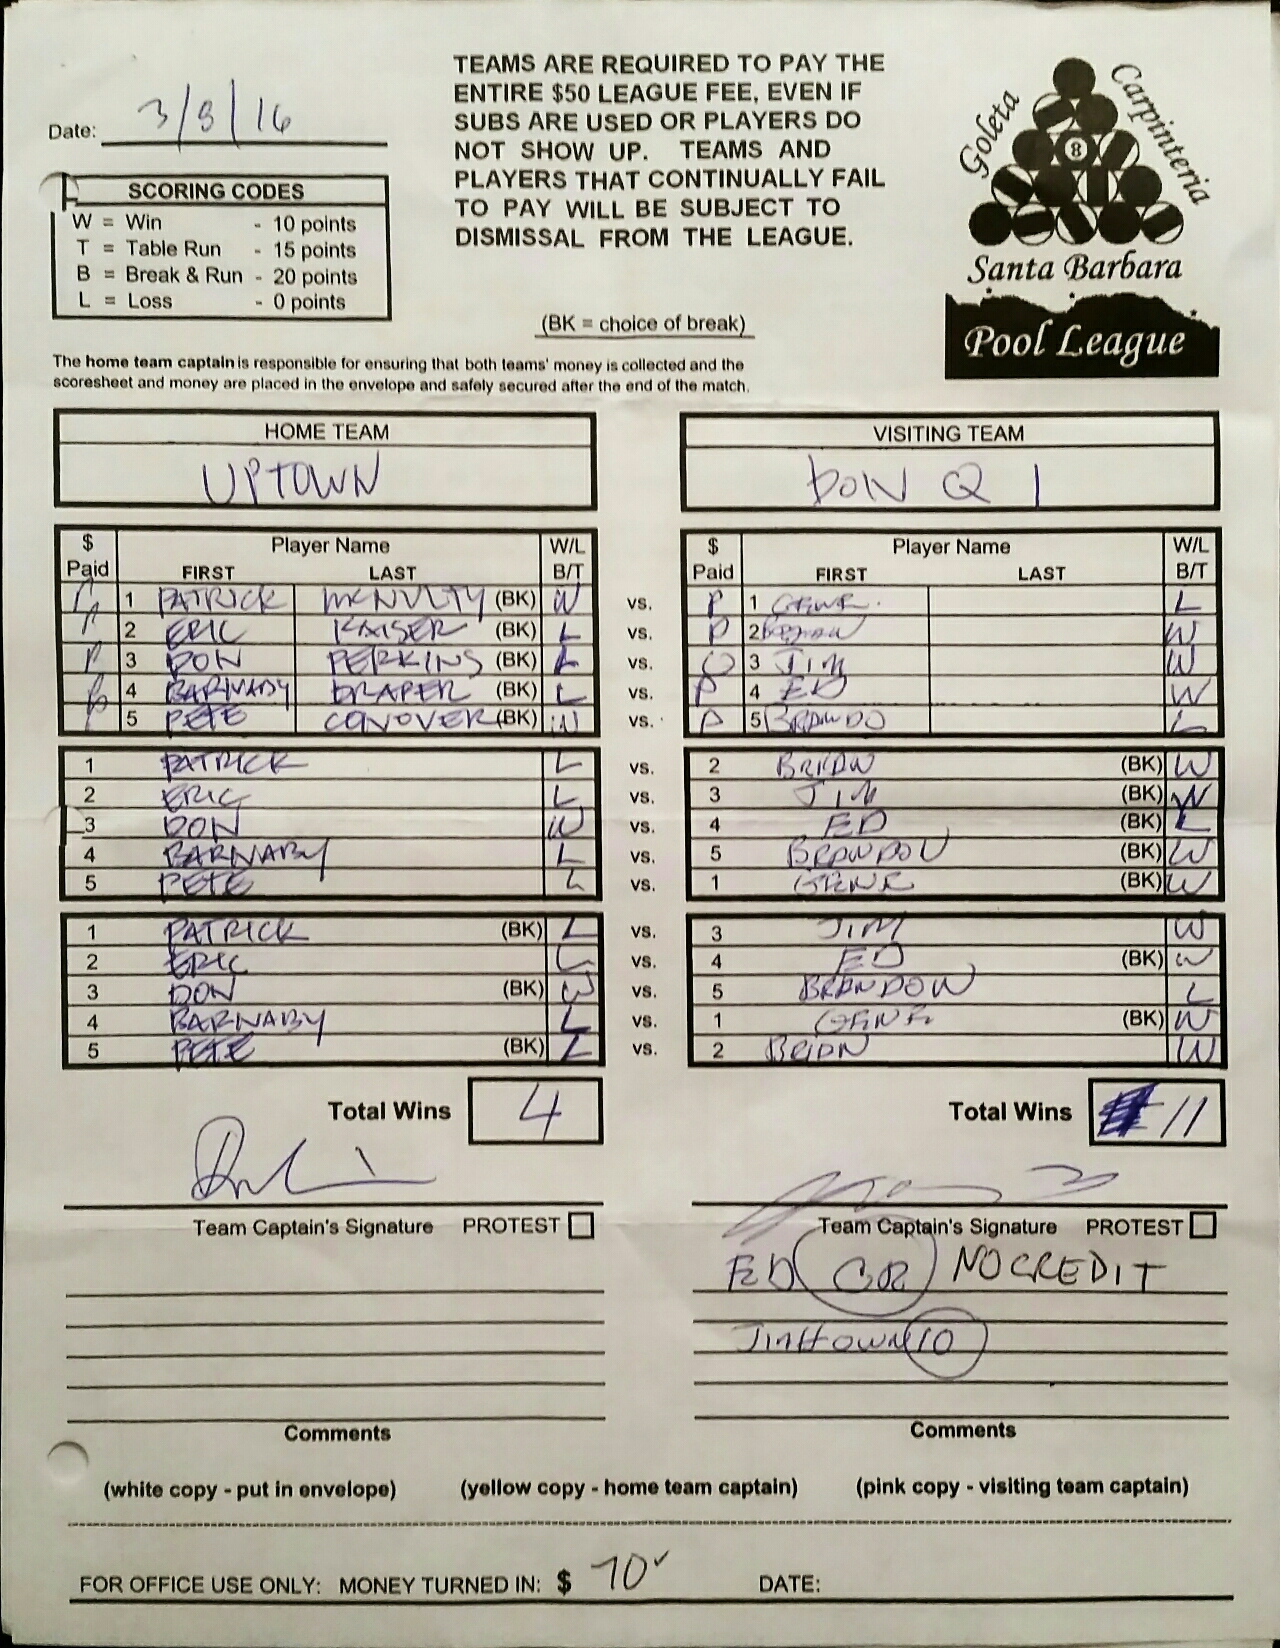 Date: 3/8/16
TEAMS ARE REQUIRED TO PAY THE
ENTIRE $50 LEAGUE FEE, EVEN IF
SUBS ARE USED OR PLAYERS DO
NOT SHOW UP. TEAMS AND
PLAYERS THAT CONTINUALLY FAIL
TO PAY WILL BE SUBJECT TO
DISMISSAL FROM THE LEAGUE.
Goleta
Carpinteria
8
Santa Barbara
Pool League
SCORING CODES
W = Win - 10 points
T = Table Run - 15 points
B = Break & Run - 20 points
L = Loss - 0 points
(BK = choice of break)
The home team captain is responsible for ensuring that both teams' money is collected and the
scoresheet and money are placed in the envelope and safely secured after the end of the match.
HOME TEAM VISITING TEAM
UPTOWN DON Q 1
$ Player Name W/L $ Player Name W/L
Paid FIRST LAST B/T Paid FIRST LAST B/T
1 PATRICK MCNULTY (BK) W vs. P 1 GENE L
2 ERIC KAISER (BK) L vs. P 2 W
P 3 DON PERKINS (BK) L vs. O 3 JIM W
4 BARNABY DRAPER (BK) L vs. P 4 ED W
5 PETE CONOVER (BK) W vs. P 5 BRANDO L
1 PATRICK L vs. 2 BRIAN (BK) W
2 ERIC L vs. 3 JIM (BK) W
3 DON W vs. 4 ED (BK) L
4 BARNABY L vs. 5 BRANDON (BK) W
5 PETE L vs. 1 GENE (BK) W
1 PATRICK (BK) L vs. 3 JIM W
2 ERIC L vs. 4 ED (BK) W
3 DON (BK) W vs. 5 BRANDON L
4 BARNABY L vs. 1 GENE (BK) W
5 PETE (BK) L vs. 2 BRIAN W
Total Wins 4 Total Wins 11
Team Captain's Signature PROTEST Team Captain's Signature PROTEST
ED CR NO CREDIT
JIM HOWN 10
Comments Comments
(white copy - put in envelope) (yellow copy - home team captain) (pink copy - visiting team captain)
FOR OFFICE USE ONLY: MONEY TURNED IN: $ 70 DATE: